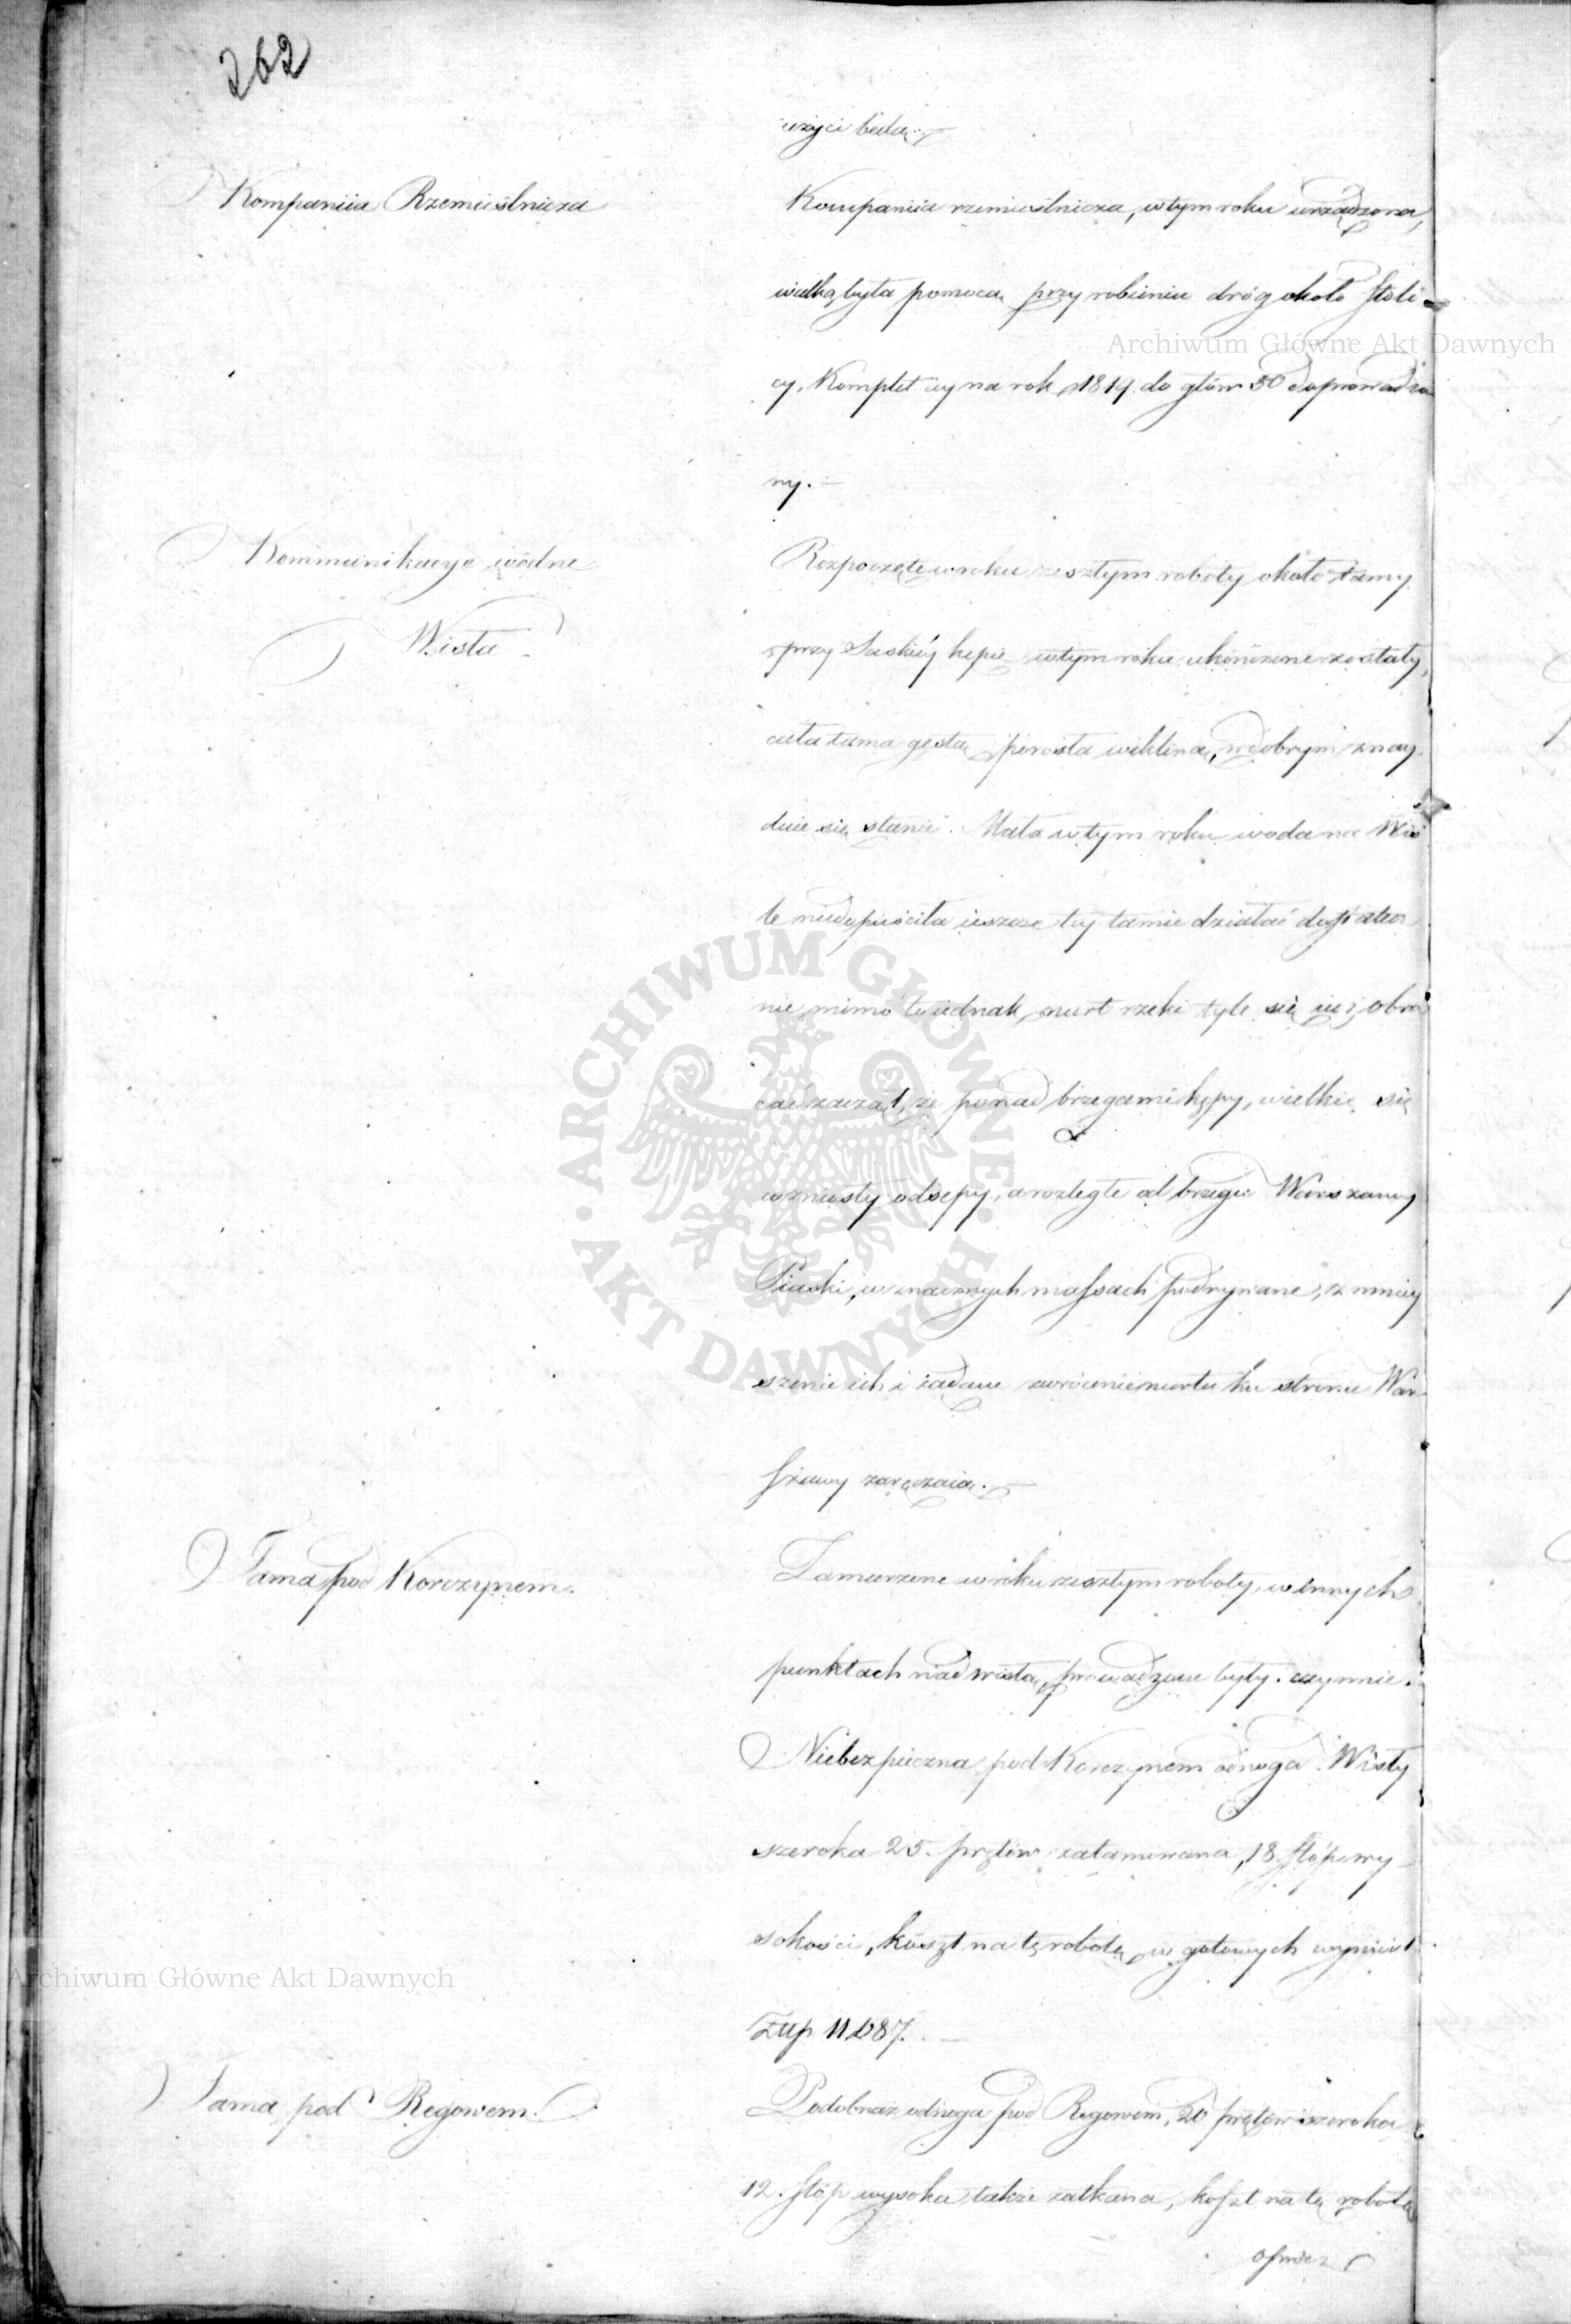 262
użyci będą.
Kompaniia Rzemieślnicza
Kompaniia rzemieślnicza, w tym roku urządzona,
wielką była pomocą przy robieniu dróg około Stoli-
cy, Komplet iey na rok 1819. do głów 50 doprowadzo
ny.
Kommunikacye wodne
Wisła
Rozpoczęte w roku zeszłym roboty około tamy
przy Saskiéy kępie w tym roku ukończone zostały,
cała tama gęstą porosła wikliną, w dobrym znay-
duie się stanie. Mała w tym roku woda na Wiś
le niedopuściła ieszcze téy tamie działać dostatecz
nie, mimo to iednak, nurt rzeki tyle się iuż obra
cać zaczął, że ponad brzegami kępy, wielkie się
wzniosły odsepy, a rozległe od brzegu Warszawy
Piaski, w znacznych massach podrywane, zmniey
szenie ich i żądane zwrócenie nurtu ku stronie War
szawy zaręczaią.
Tama pod Korczynem.
Zamierzone w roku zeszłym roboty, w innych
punktach nad Wisłą, prowadzone były czynnie.
Niebezpieczna pod Korczynem odnoga Wisły
szeroka 25. prętów zatamowana, 18. stóp wy
sokości, koszt na tę robotę w gotowych wyniosł
Złlp 11,087.
Tama pod Regowem.
Podobnaż odnoga pod Regowem, 20 prętów szeroka
12. stóp wysoka także zatkana, koszt na tę robotę
Archiwum Główne Akt Dawnych
Archiwum Główne Akt Dawnych
ARCHIWUM GŁÓWNE · AKT DAWNYCH ·